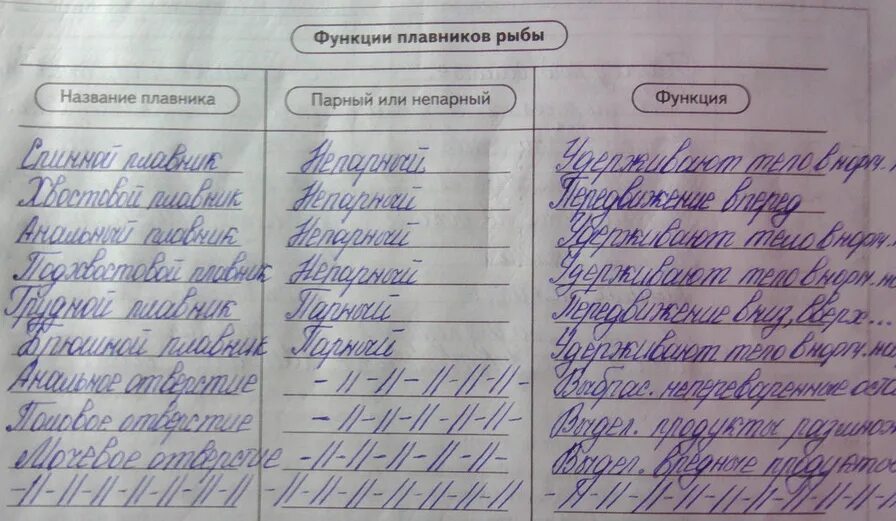 Функции плавников рыбы
Название плавника Парный или непарный Функция
Спинной плавник Непарный Удерживают тело в норм.
Хвостовой плавник Непарный Передвижение вперед
Анальный плавник Непарный Удерживают тело в норм.
Подхвостовой плавник Непарный Удерживают тело в норм. по
Грудной плавник Парный Передвижение вниз, вверх...
Брюшной плавник Парный Удерживают тело в норм. по
Анальное отверстие -//-//-//-//-//- Выбрас. непереваренные ос
Половое отверстие -//-//-//-//-//- Выдел. продукты размнож
Мочевое отверстие -//-//-//-//-//- Выдел. вредные продукто
-//-//-//-//-//-//-//- -//-//-//-//-//-//- -//-//-//-//-//-//-//-//